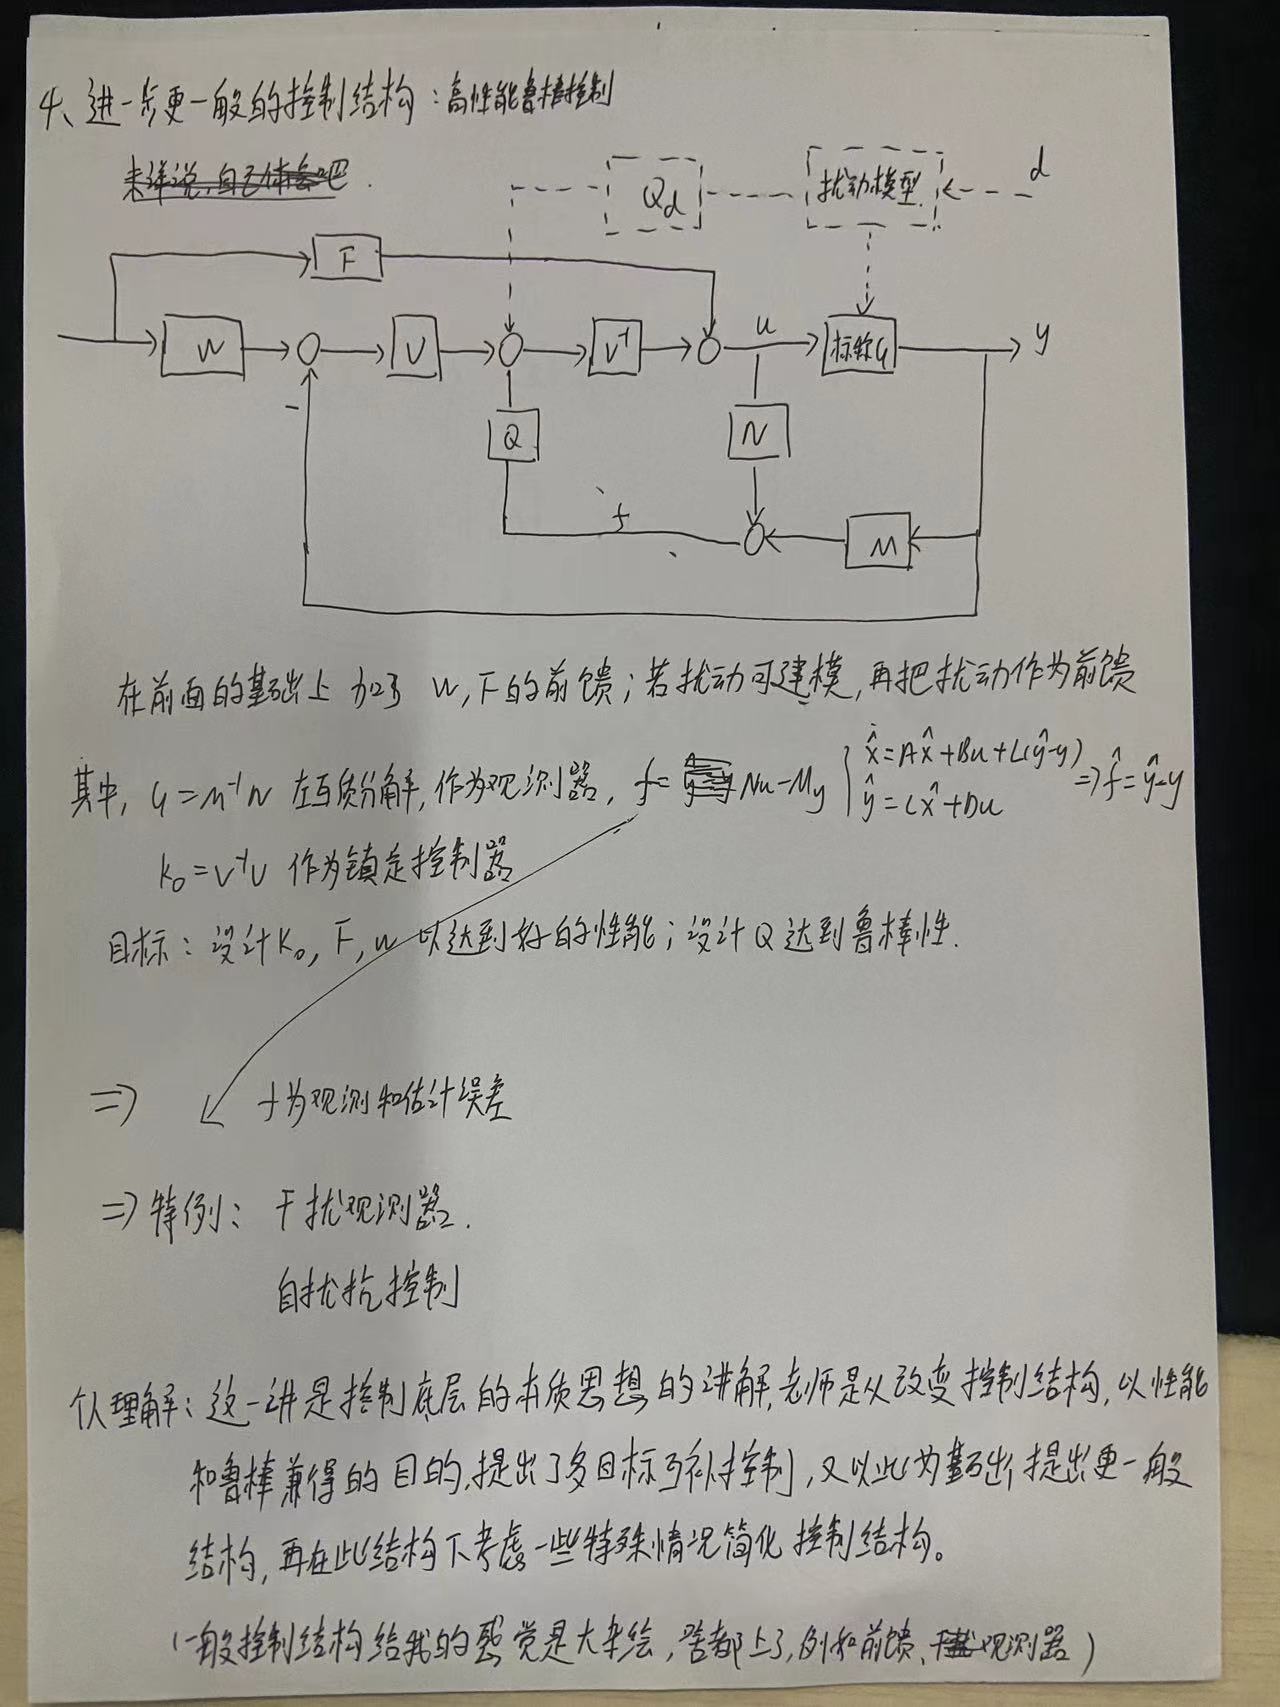 4、进一步更一般的控制结构：高性能鲁棒控制
未详说，自己体会吧.
Qd
扰动模型
d
F
W
U
V⁻¹
u
标称G
y
Q
N
f
M
-
在前面的基础上加了 W, F的前馈；若扰动可建模，再把扰动作为前馈
其中, G=M⁻¹N 左互质分解, 作为观测器, f= Nu-My { x̂̇=Ax̂+Bu+L(ŷ-y) ŷ=Cx̂+Du ⇒ f̂=ŷ-y
K₀=V⁻¹U 作为镇定控制器
目标：设计K₀, F, W 以达到好的性能；设计Q达到鲁棒性.
⇒ f为观测和估计误差
⇒ 特例：干扰观测器.
自扰抗控制
个人理解：这一讲是控制底层的本质思想的讲解,老师是从改变控制结构,以性能
和鲁棒兼得的目的,提出了多目标互补控制,又以此为基础,提出更一般
结构,再在此结构下考虑一些特殊情况简化控制结构。
(一般控制结构给我的感觉是大杂绘,啥都上了,例如前馈、干扰观测器)